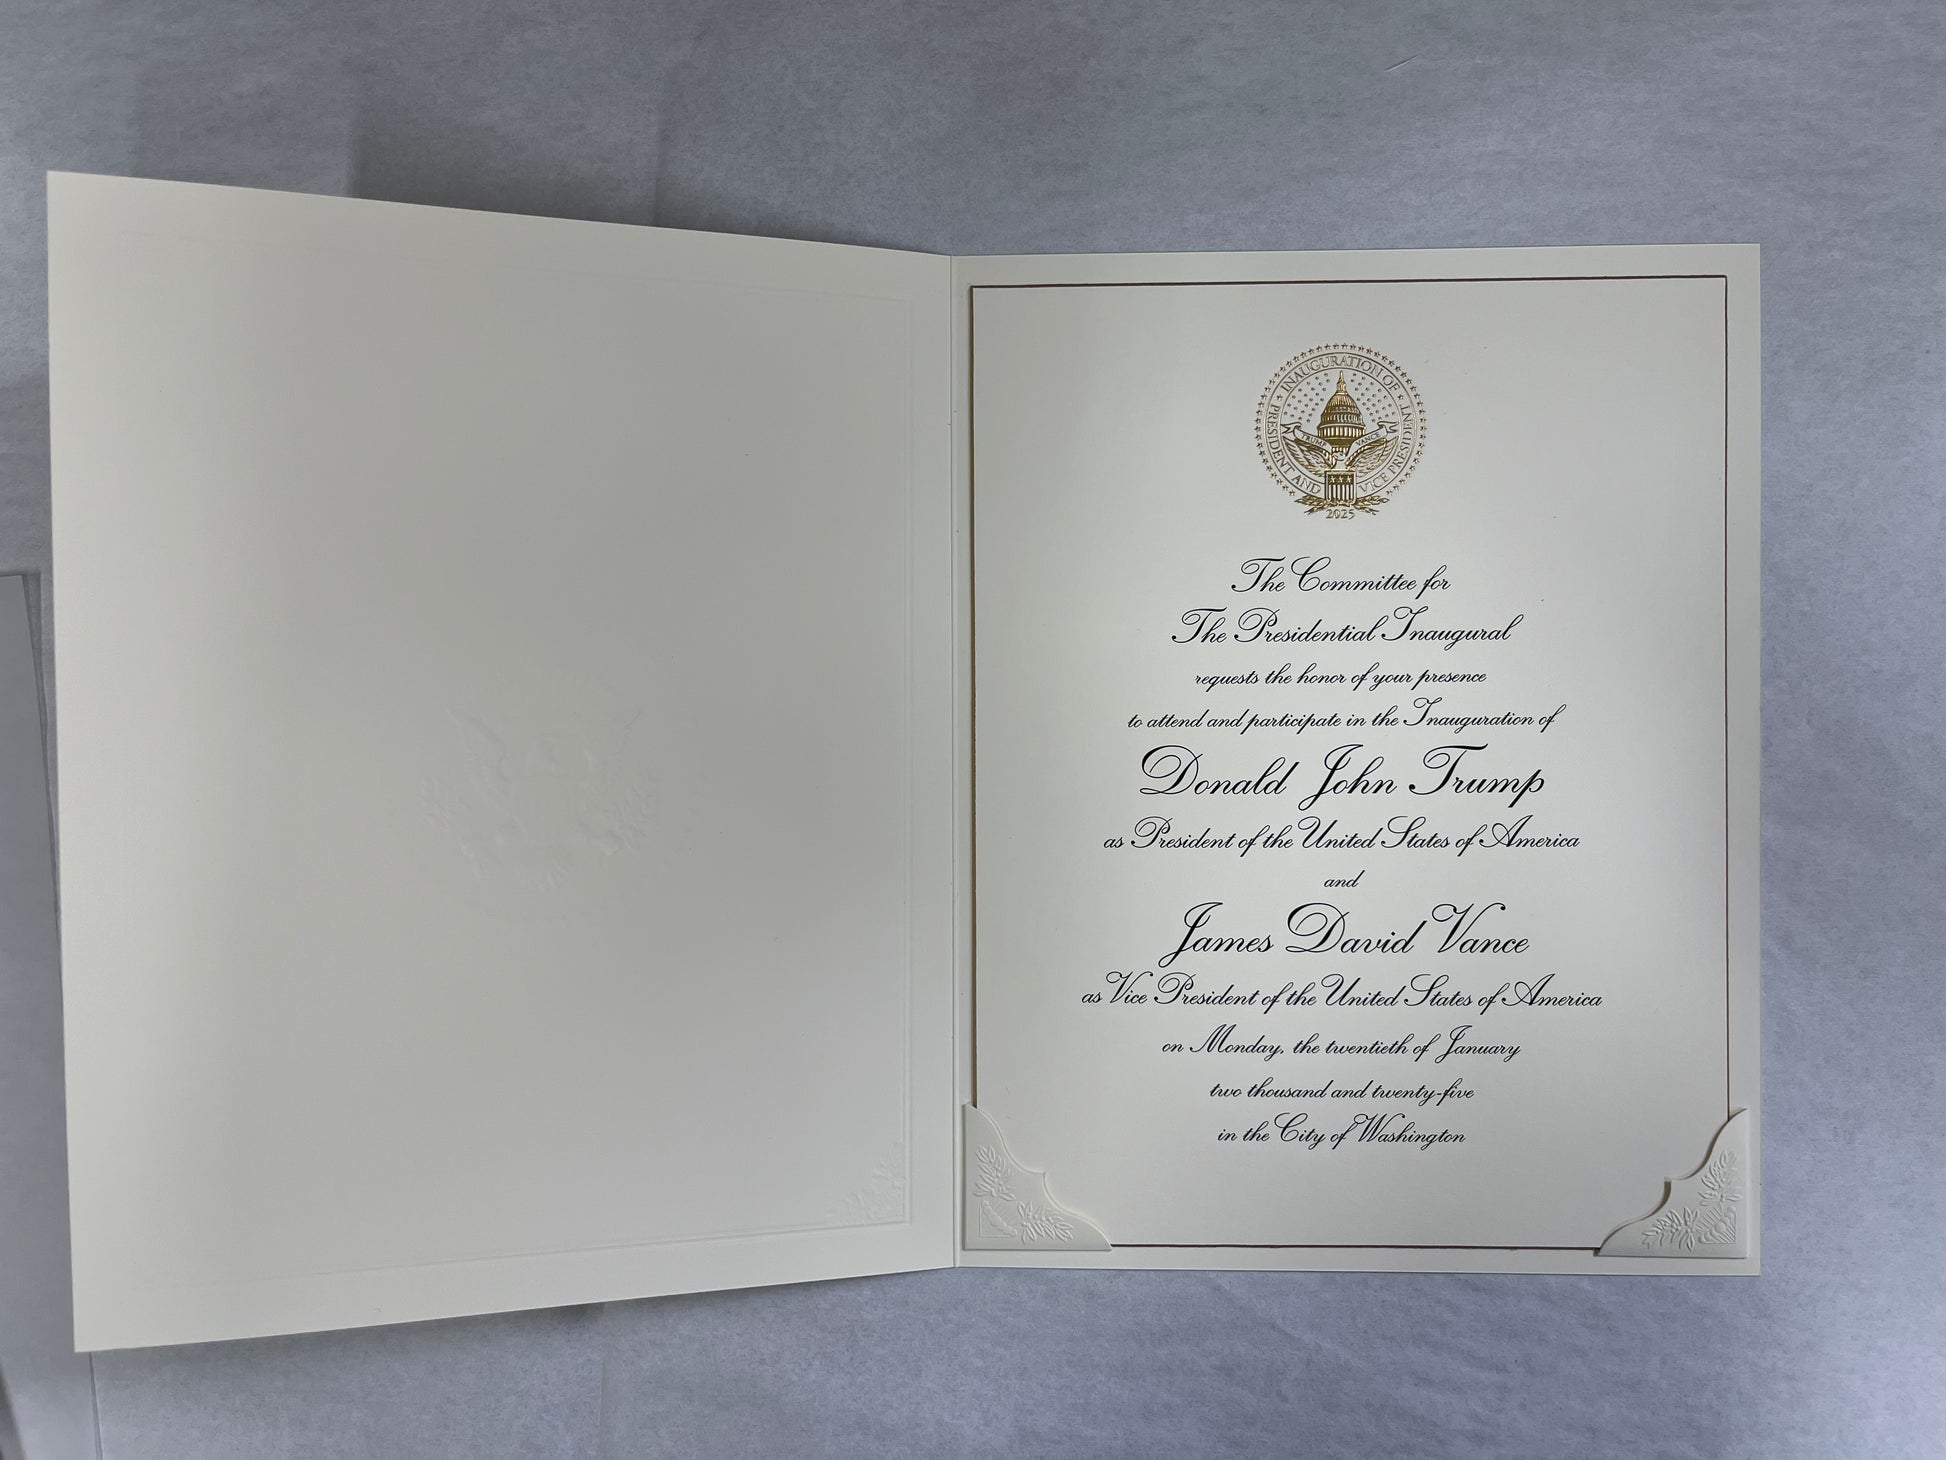 INAUGURATION OF
PRESIDENT AND VICE PRESIDENT
TRUMP VANCE
2025
The Committee for
The Presidential Inaugural
requests the honor of your presence
to attend and participate in the Inauguration of
Donald John Trump
as President of the United States of America
and
James David Vance
as Vice President of the United States of America
on Monday, the twentieth of January
two thousand and twenty-five
in the City of Washington